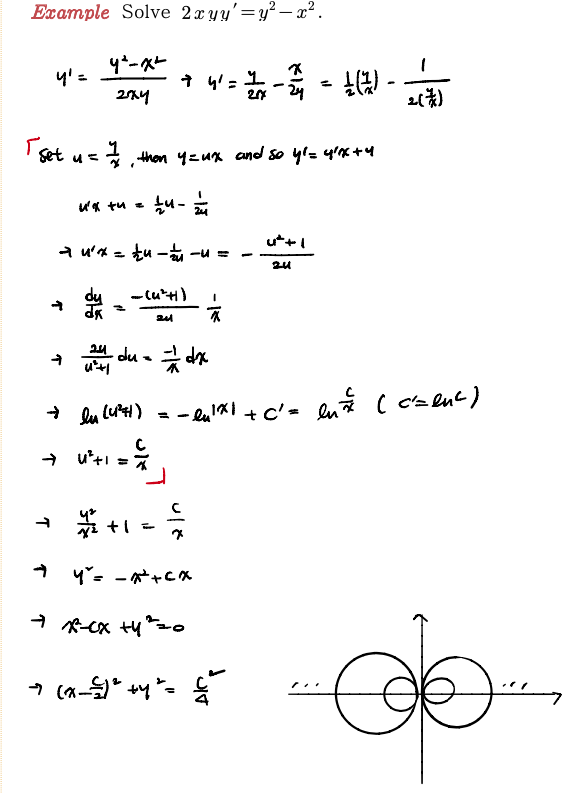 Example Solve 2xyy′=y²−x².
y' = (y²-x²)/(2xy) → y' = y/(2x) - x/(2y) = 1/2(y/x) - 1/(2(y/x))
「Set u = y/x, then y=ux and so y'= u'x+u
u'x +u = 1/2u - 1/(2u)
→ u'x = 1/2u - 1/(2u) - u = - (u²+1)/(2u)
→ du/dx = -(u²+1)/(2u) 1/x
→ 2u/(u²+1) du = -1/x dx
→ ln(u²+1) = -ln|x| + C' = ln C/x ( C'=lnC)
→ u²+1 = C/x 」
→ y²/x² +1 = C/x
→ y² = -x²+Cx
→ x²-Cx +y²=0
→ (x-C/2)² +y² = C²/4
... ...